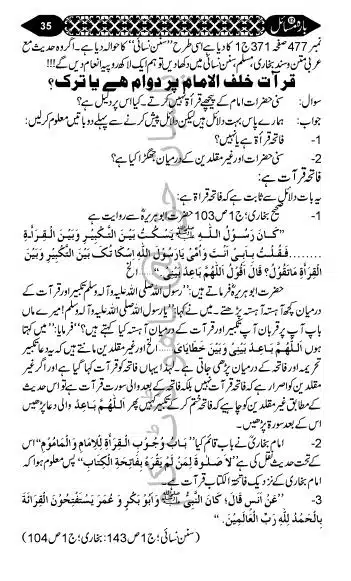 بارہ مسائل 35
نمبر 477 صفحہ 371 ج 1 کا دیا ہے اسی طرح "سنن نسائی" کا حوالہ دیا ہے۔ اگر وہ حدیث مع
عربی متن و سند بخاری، مسلم سنن نسائی میں دکھا دیں تو ہم ایک لاکھ روپیہ انعام دیں گے!
قرآت خلف الامام پر دوام ہے یا ترک؟
سوال: سنی حضرات امام کے پیچھے قرأۃ نہیں کرتے۔ کیا اس پر دلیل ہے؟
جواب: ہمارے پاس بہت دلائل ہیں لیکن دلائل پیش کرنے سے پہلے دو باتیں معلوم کر لیں:
1- فاتحہ قرأۃ ہے یا نہیں؟
2- سنی حضرات اور غیر مقلدین کے درمیان جھگڑا کیا ہے؟
فاتحہ قرآت ہے:
یہ بات دلائل سے ثابت ہے کہ فاتحہ قرأۃ ہے۔
1- صحیح بخاری؛ ج 1 ص 103 حضرت ابو ہریرہؓ سے روایت ہے
"کَانَ رَسُوْلُ اللہِ ﷺ یَسْکُتُ بَیْنَ التَّکْبِیْرِ وَبَیْنَ الْقِرَاءَۃِ
........فَقُلْتُ بِاَبِیْ اَنْتَ وَاُمِّیْ یَارَسُوْلَ اللہِ اِسْکَاتُکَ بَیْنَ التَّکْبِیْرِ وَبَیْنَ
الْقِرَاءَۃِ مَاتَقُوْلُ؟ قَالَ اَقُوْلُ اَللّٰھُمَّ بَاعِدْ بَیْنِیْ......" الخ
حضرت ابو ہریرہؓ فرماتے ہیں: "رسول اللہ صلی اللہ علیہ وآلہ وسلم تکبیر اور قرآت کے
درمیان کچھ آہستہ آہستہ پڑھتے۔ میں نے کہا: "یا رسول اللہ صلی اللہ علیہ وآلہ وسلم! میرے ماں
باپ آپ پر قربان آپ تکبیر اور قرآت کے درمیان آہستہ کیا کہتے ہیں؟" فرمایا: "میں کہتا
ہوں اَللّٰھُمَّ بَاعِدْ بَیْنِیْ وَبَیْنَ خَطَایَایَ.....الخ اور غیر مقلدین مانتے ہیں کہ یہ دعا تکبیر
تحریمہ اور فاتحہ کے درمیان پڑھی جاتی ہے۔ لہٰذا یہاں فاتحہ کو قرآت کہا گیا ہے اور اگر غیر
مقلدین کو اصرار ہے کہ فاتحہ قرآت نہیں بلکہ فاتحہ کے بعد والی سورت قرآت ہے تو اس حدیث
کے مطابق غیر مقلدین کو چاہیے کہ فاتحہ ختم کر کے تکبیر کہیں پھر اَللّٰھُمَّ بَاعِدْ والی دعا پڑھیں
اس کے بعد سورۃ پڑھیں۔
2- امام بخاریؒ نے باب قائم کیا "بَابُ وُجُوْبِ الْقِرَاءَۃِ لِلْاِمَامِ وَالْمَامُوْمِ" اس
کے تحت حدیث نقل کی ہے "لَا صَلٰوۃَ لِمَنْ لَّمْ یَقْرَءْ بِفَاتِحَۃِ الْکِتَابِ" پس معلوم ہوا کہ
امام بخاریؒ کے نزدیک فاتحۃ الکتاب قرآت ہے۔
3- "عَنْ اَنَسٍ قَالَ؛ کَانَ النَّبِیُّ ﷺ وَاَبُوْبَکْرٍ وَ عُمَرُ یَسْتَفْتِحُوْنَ الْقِرَائَۃَ
بِالْحَمْدُ لِلّٰہِ رَبِّ الْعَالَمِیْنَ۔"
(سنن نسائی؛ ج 1 ص 143: بخاری؛ ج 1 ص 104)